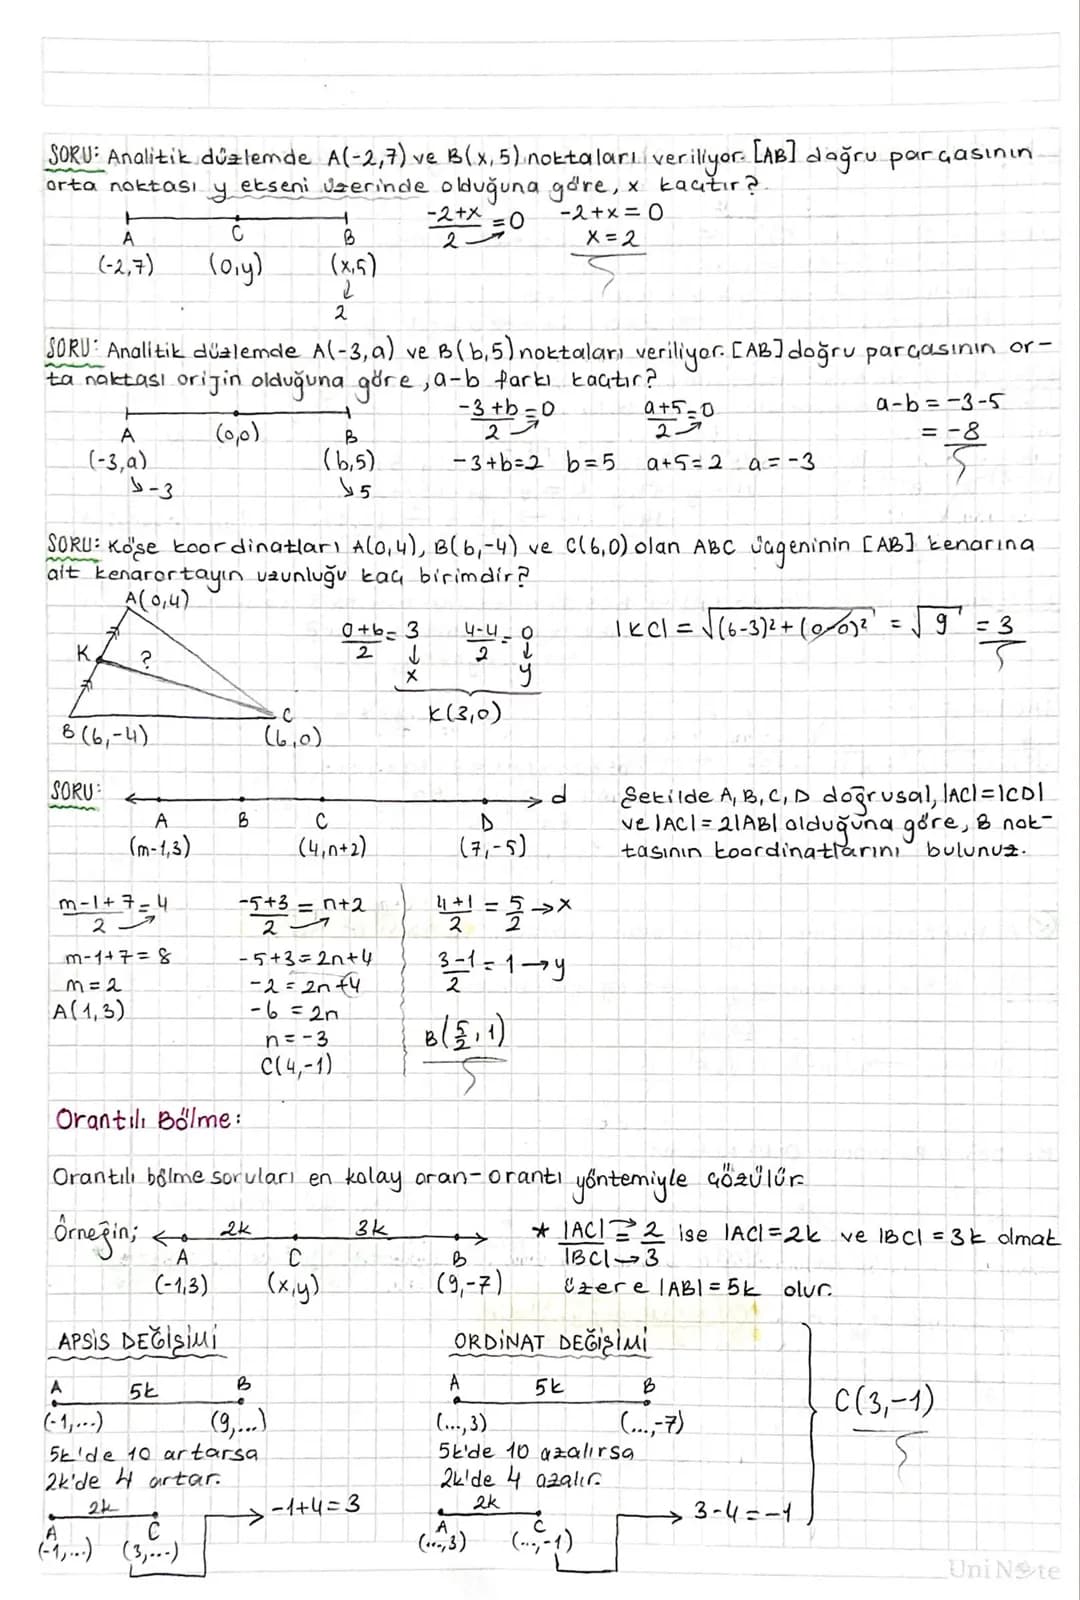 SORU: Analitik düzlemde A(-2,7) ve B(x,5) noktaları veriliyor. [AB] doğru parçasının
orta noktası y ekseni üzerinde olduğuna göre, x kaçtır?
A C B
(-2,7) (0,y) (x,5)
↓
2
(-2+x)/2 = 0
-2+x = 0
x = 2
SORU: Analitik düzlemde A(-3,a) ve B(b,5) noktaları veriliyor. [AB] doğru parçasının or-
ta noktası orijin olduğuna göre, a-b farkı kaçtır?
A (0,0) B
(-3,a) (b,5)
↘-3 ↘5
(-3+b)/2 = 0 (a+5)/2 = 0
-3+b=2 b=5 a+5=2 a=-3
a-b = -3-5
= -8
SORU: Köşe koordinatları A(0,4), B(6,-4) ve C(6,0) olan ABC üçgeninin [AB] kenarına
ait kenarortayın uzunluğu kaç birimdir?
A(0,4)
K ?
C
B(6,-4) (6,0)
(0+6)/2 = 3 (4-4)/2 = 0
↓ ↓
x y
K(3,0)
|KC| = √((6-3)²+(0-0)²) = √9 = 3
SORU: d
A B C D
(m-1,3) (4,n+2) (7,-5)
Şekilde A, B, C, D doğrusal, |AC|=|CD|
ve |AC|=2|AB| olduğuna göre, B nok-
tasının koordinatlarını bulunuz.
(m-1+7)/2 = 4
m-1+7=8
m=2
A(1,3)
(-5+3)/2 = n+2
-5+3=2n+4
-2=2n+4
-6=2n
n=-3
C(4,-1)
(4+1)/2 = 5/2 → x
(3-1)/2 = 1 → y
B(5/2,1)
Orantılı Bölme:
Orantılı bölme soruları en kolay oran-orantı yöntemiyle çözülür.
Örneğin; 2k 3k
A C B
(-1,3) (x,y) (9,-7)
* |AC|/|BC| = 2/3 ise |AC|=2k ve |BC|=3k olmak
üzere |AB|=5k olur.
APSİS DEĞİŞİMİ
A 5k B
(-1,...) (9,...)
5k'de 10 artarsa
2k'de 4 artar.
2k
A C
(-1,...) (3,...)
→ -1+4=3
ORDİNAT DEĞİŞİMİ
A 5k B
(...,3) (...,-7)
5k'de 10 azalırsa
2k'de 4 azalır.
2k
A C
(...,3) (...,-1)
→ 3-4=-1
C(3,-1)
UniNote